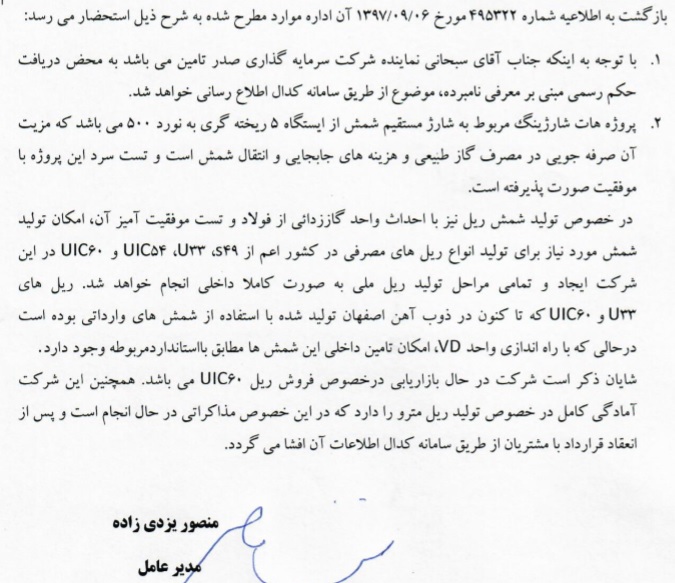 بازگشت به اطلاعیه شماره ۴۹۵۳۲۲ مورخ ۱۳۹۷/۰۹/۰۶ آن اداره موارد مطرح شده به شرح ذیل استحضار می رسد:
۱. با توجه به اینکه جناب آقای سبحانی نماینده شرکت سرمایه گذاری صدر تامین می باشد به محض دریافت
حکم رسمی مبنی بر معرفی نامبرده، موضوع از طریق سامانه کدال اطلاع رسانی خواهد شد.
۲. پروژه هات شارژینگ مربوط به شارژ مستقیم شمش از ایستگاه ۵ ریخته گری به نورد ۵۰۰ می باشد که مزیت
آن صرفه جویی در مصرف گاز طبیعی و هزینه های جابجایی و انتقال شمش است و تست سرد این پروژه با
موفقیت صورت پذیرفته است.
در خصوص تولید شمش ریل نیز با احداث واحد گاززدائی از فولاد و تست موفقیت آمیز آن، امکان تولید
شمش مورد نیاز برای تولید انواع ریل های مصرفی در کشور اعم از S۴۹، U۳۳، UIC۵۴ و UIC۶۰ در این
شرکت ایجاد و تمامی مراحل تولید ریل ملی به صورت کاملا داخلی انجام خواهد شد. ریل های
U۳۳ و UIC۶۰ که تا کنون در ذوب آهن اصفهان تولید شده با استفاده از شمش های وارداتی بوده است
درحالی که با راه اندازی واحد VD، امکان تامین داخلی این شمش ها مطابق بااستانداردمربوطه وجود دارد.
شایان ذکر است شرکت در حال بازاریابی درخصوص فروش ریل UIC۶۰ می باشد. همچنین این شرکت
آمادگی کامل در خصوص تولید ریل مترو را دارد که در این خصوص مذاکراتی در حال انجام است و پس از
انعقاد قرارداد با مشتریان از طریق سامانه کدال اطلاعات آن افشا می گردد.
منصور یزدی زاده
مدیر عامل